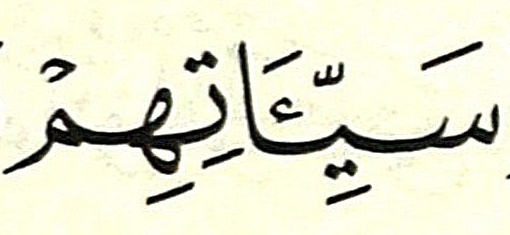 سَيِّـَٔاتِهِمْ